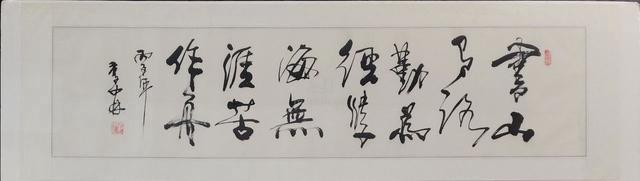 書山
有路
勤為
徑學
海無
涯苦
作舟
丙子年